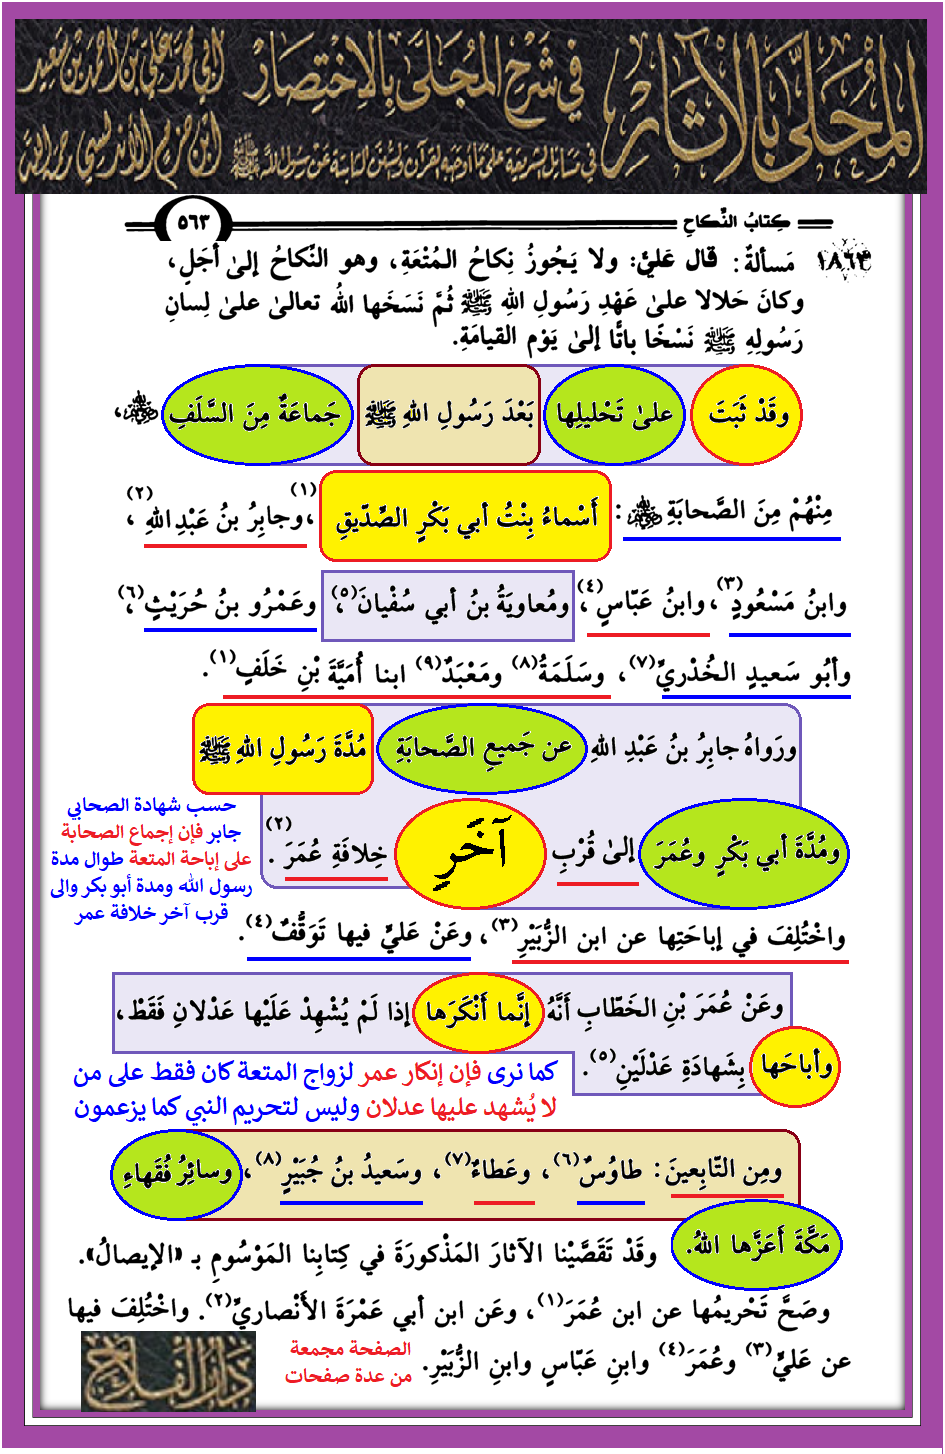 المُحلّى بالآثار
في شرح المجلى بالاختصار
أبي محمد علي بن أحمد بن سعيد
في مسائل الشريعة على ما أوجبه القرآن والسنن الثابتة عن رسول الله ﷺ
ابن حزم الأندلسي رحمه الله
كِتابُ النِّكاحِ
٥٦٣
١٨٦٣ مَسألةٌ: قال عَليّ: ولا يَجُوزُ نِكاحُ المُتْعَةِ، وهو النِّكاحُ إلىٰ أجَلٍ،
وكانَ حَلالا علىٰ عَهْدِ رَسُولِ اللهِ ﷺ ثُمَّ نَسَخَها اللهُ تعالىٰ علىٰ لِسانِ
رَسُولِهِ ﷺ نَسْخًا باتًّا إلىٰ يَوْمِ القيامَةِ.
وقَدْ ثَبَتَ علىٰ تَحْليلِها بَعْدَ رَسُولِ اللهِ ﷺ جَماعَةٌ مِنَ السَّلَفِ ﵃،
مِنْهُمْ مِنَ الصَّحابَةِ ﵃: أَسْماءُ بِنْتُ أبي بَكْرٍ الصِّدّيقِ (١)، وجابِرُ بنُ عَبْدِ اللهِ (٢)،
وابنُ مَسْعُودٍ (٣)، وابنُ عَبّاسٍ (٤)، ومُعاويَةُ بنُ أبي سُفْيانَ (٥)، وعَمْرُو بنُ حُرَيْثٍ (٦)،
وأبُو سَعيدٍ الخُدْريِّ (٧)، وسَلَمَةُ (٨) ومَعْبَدٌ (٩) ابنا أُمَيَّةَ بْنِ خَلَفٍ (١).
ورَواهُ جابِرُ بنُ عَبْدِ اللهِ عن جَميعِ الصَّحابَةِ مُدَّةَ رَسُولِ اللهِ ﷺ
ومُدَّةَ أبي بَكْرٍ وعُمَرَ إلىٰ قُرْبِ آخَرِ خِلافَةِ عُمَرَ (٢).
حسب شهادة الصحابي
جابر فإن إجماع الصحابة
على إباحة المتعة طوال مدة
رسول الله ومدة أبو بكر والى
قرب آخر خلافة عمر
واخْتُلِفَ في إباحَتِها عن ابن الزُّبَيْرِ (٣)، وعَنْ عَليٍّ فيها تَوَقُّفٌ (٤).
وعَنْ عُمَرَ بْنِ الخَطّابِ أنَّهُ إنَّما أَنْكَرَها إذا لَمْ يُشْهِدْ عَلَيْها عَدْلانِ فَقَطْ،
وأباحَها بِشَهادَةِ عَدْلَيْنِ (٥).
كما نرى فإن إنكار عمر لزواج المتعة كان فقط على من
لا يُشهد عليها عدلان وليس لتحريم النبي كما يزعمون
ومِن التّابِعينَ: طاوُسٌ (٦)، وعَطاءٌ (٧)، وسَعيدُ بنُ جُبَيْرٍ (٨)، وسائِرُ فُقَهاءِ
مَكَّةَ أعَزَّها اللهُ. وقَدْ تَقَصَّيْنا الآثارَ المَذْكورَةَ في كِتابِنا المَوْسُومِ بـ «الإيصالُ».
وصَحَّ تَحْريمُها عن ابن عُمَرَ (١)، وعَن ابن أبي عَمْرَةَ الأَنْصاريِّ (٢). واخْتُلِفَ فيها
عن عَليٍّ (٣) وعُمَرَ (٤) وابنِ عَبّاسٍ وابنِ الزُّبَيْرِ.
الصفحة مجمعة
من عدة صفحات
دار الفلاح